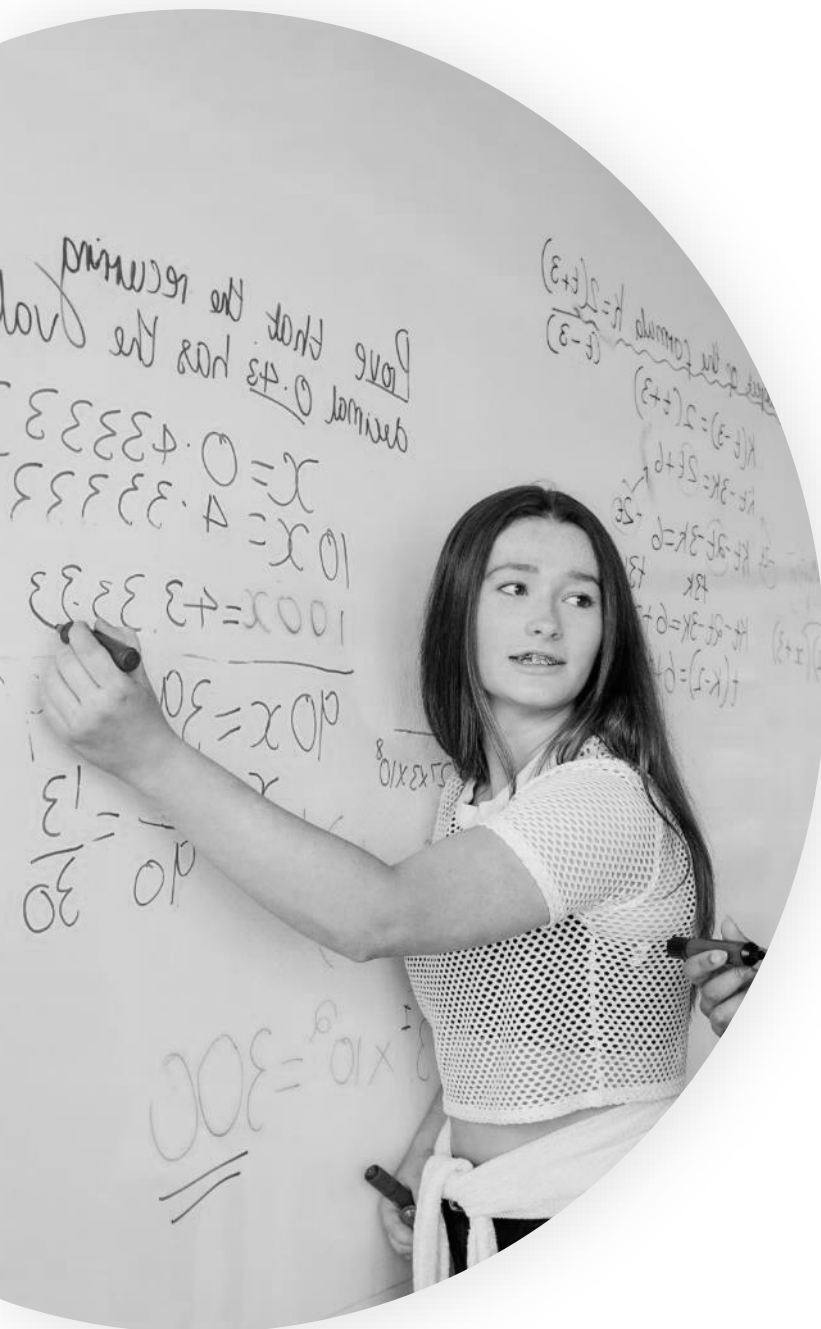 Prove that the recurring
decimal 0.43 has the
x=0.43333
10x=4.33333
100x=43.33333
90x=39
x
= 13
90 30
27x3x10⁸
x10²=300
of the formula k=2(t+3)
(t-3)
k(t-3)=2(t+3)
kt-3k=2t+6
kt-2t-3k=6
kt-2t-3k=6+
t(k-2)=6+